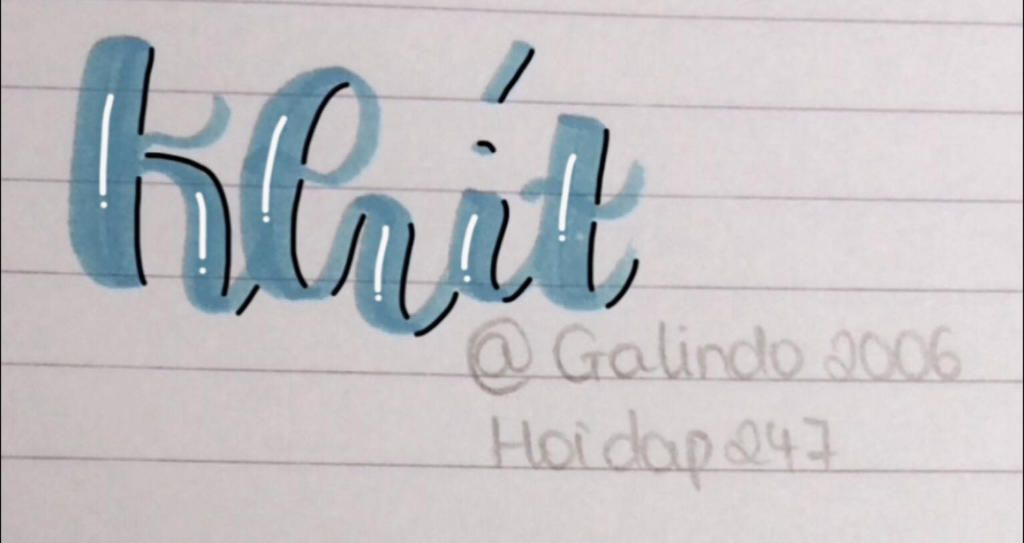 Khít
@Galindo 2006
Hoidap247